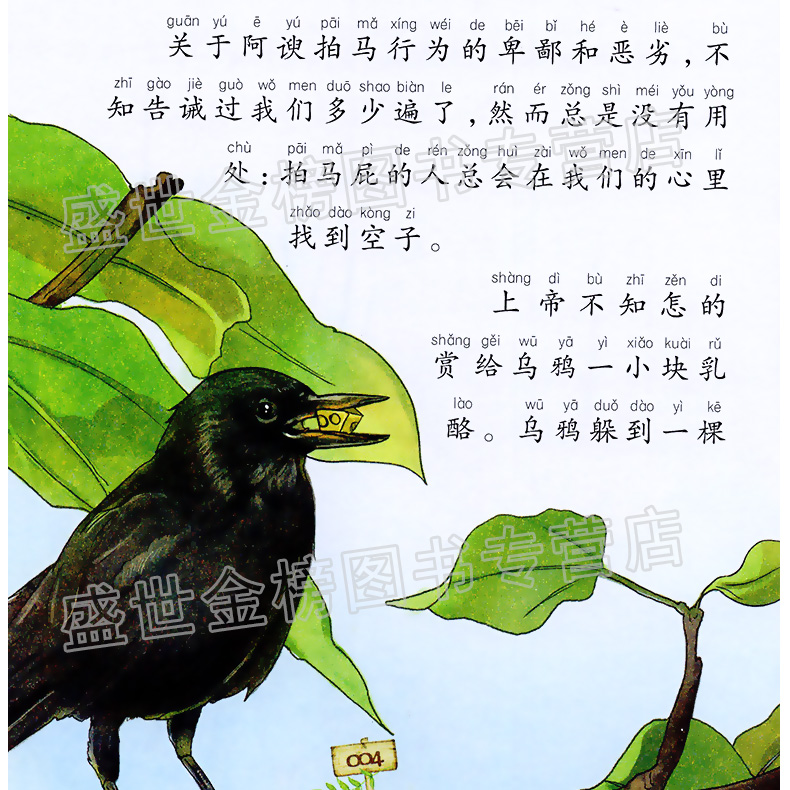 guān yú ē yú pāi mǎ xíng wéi de bēi bǐ hé è liè bù
关于阿谀拍马行为的卑鄙和恶劣，不
zhī gào jiè guò wǒ men duō shao biàn le rán ér zǒng shì méi yǒu yòng
知告诫过我们多少遍了，然而总是没有用
chù pāi mǎ pì de rén zǒng huì zài wǒ men de xīn lǐ
处：拍马屁的人总会在我们的心里
zhǎo dào kòng zi
找到空子。
shàng dì bù zhī zěn di
上帝不知怎的
shǎng gěi wū yā yì xiǎo kuài rǔ
赏给乌鸦一小块乳
lào wū yā duǒ dào yì kē
酪。乌鸦躲到一棵
盛世金榜图书专营店
盛世金榜图书专营店
004